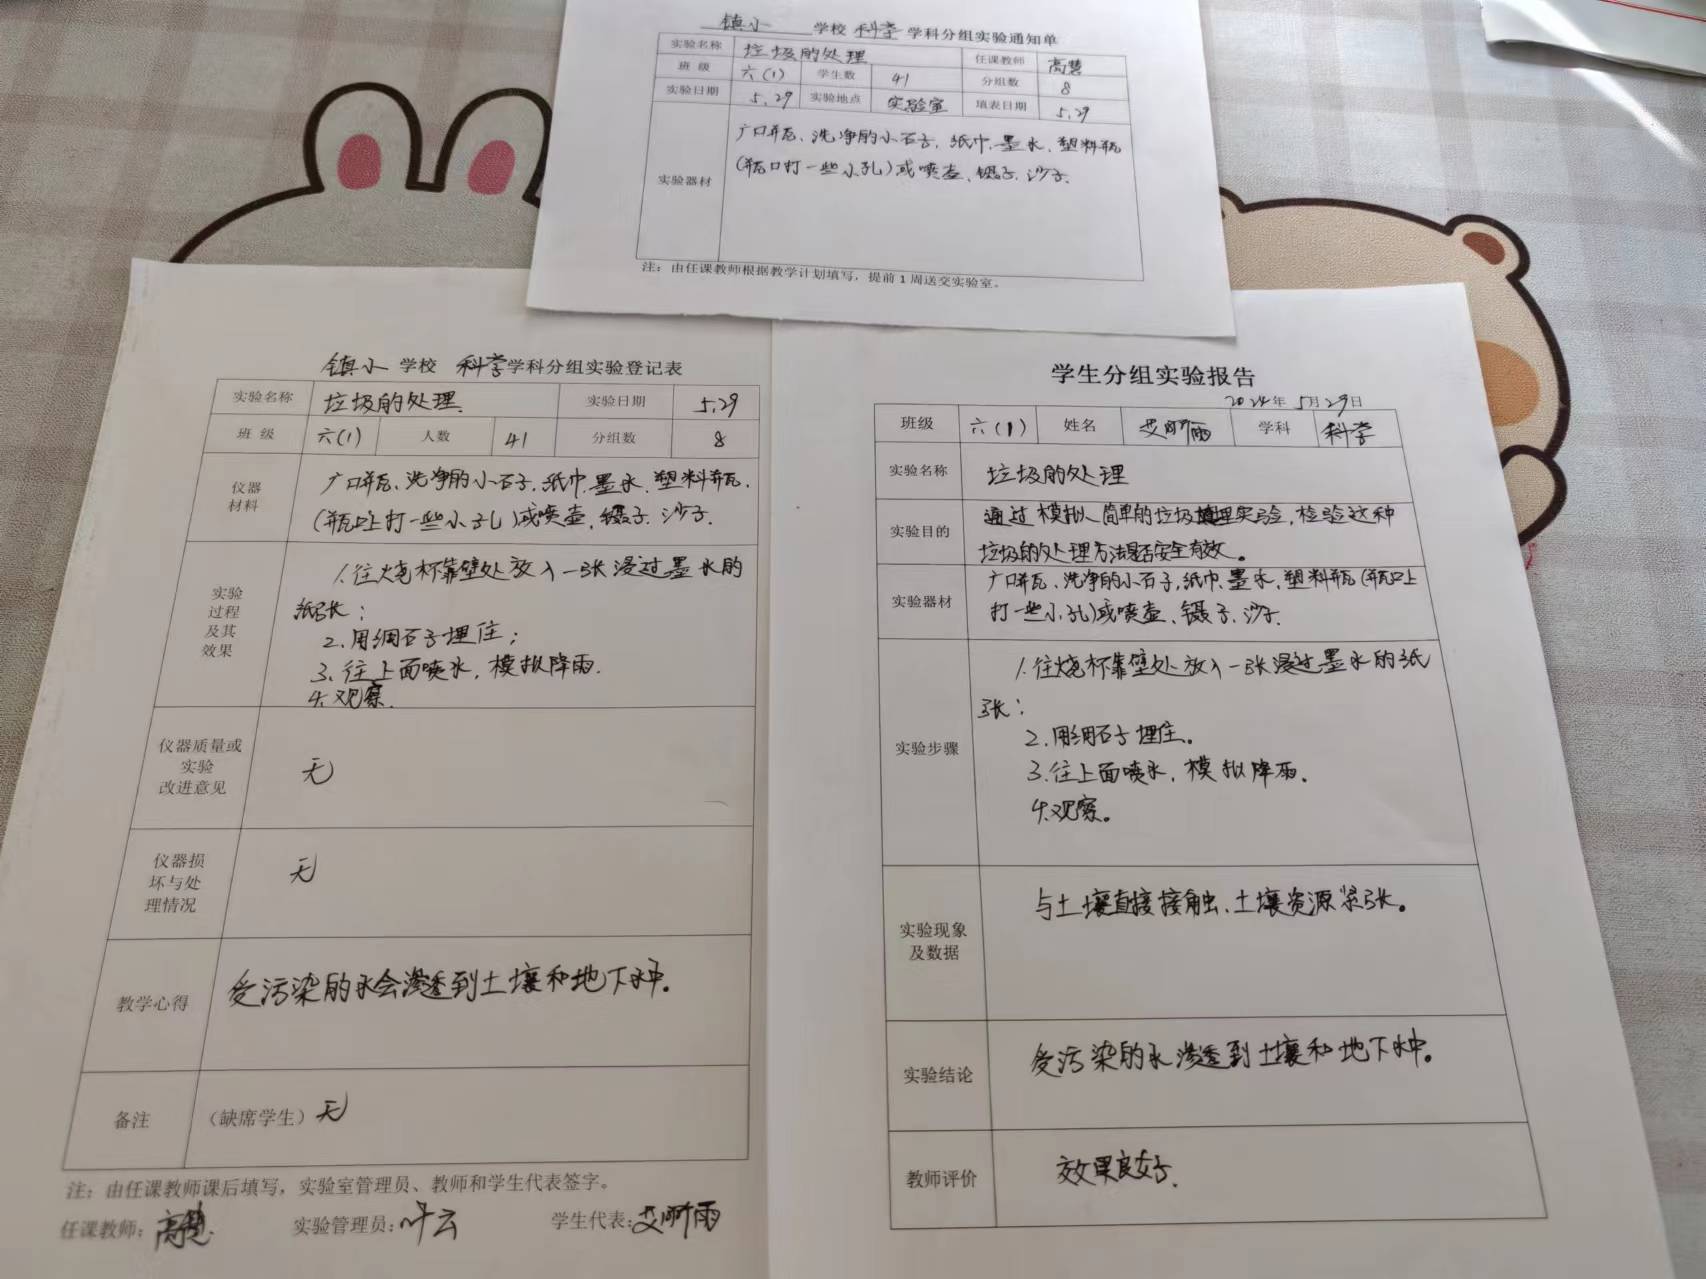 镇小 学校 科学 学科分组实验通知单
实验名称 垃圾的处理 任课教师 高慧
班 级 六(1) 学生数 41 分组数 8
实验日期 5.29 实验地点 实验室 填表日期 5.29
实验器材
广口瓶、洗净的小石子、纸巾、墨水、塑料瓶
(瓶口打一些小孔)或喷壶、镊子、沙子.
注：由任课教师根据教学计划填写，提前1周送交实验室。
镇小 学校 科学学科分组实验登记表
实验名称 垃圾的处理. 实验日期 5.29
班 级 六(1) 人数 41 分组数 8
仪器
材料
广口瓶、洗净的小石子、纸巾、墨水、塑料瓶、
(瓶口上打一些小孔)或喷壶、镊子、沙子.
实验
过程
及其
效果
1.往烧杯靠壁处放入一张浸过墨水的
纸张；
2.用细石子埋住；
3.往上面喷水，模拟降雨.
4.观察.
仪器质量或
实验
改进意见
无
仪器损
坏与处
理情况
无
教学心得
受污染的水会渗透到土壤和地下水中.
备注 （缺席学生）无
注：由任课教师课后填写，实验室管理员、教师和学生代表签字。
任课教师：高慧. 实验管理员：叶云 学生代表：艾昕雨
学生分组实验报告
2024年5月29日
班级 六(1) 姓名 艾昕雨 学科 科学
实验名称 垃圾的处理
实验目的
通过模拟、简单的垃圾填埋实验，检验这种
垃圾的处理方法是否安全有效。
实验器材
广口瓶、洗净的小石子，纸巾、墨水、塑料瓶(瓶口上
打一些小孔)或喷壶、镊子、沙子.
实验步骤
1.往烧杯靠壁处放入一张浸过墨水的纸
张；
2.用细石子埋住。
3.往上面喷水，模拟降雨.
4.观察。
实验现象
及数据
与土壤直接接触、土壤资源紧张。
实验结论
受污染的水渗透到土壤和地下水中。
教师评价 效果良好.